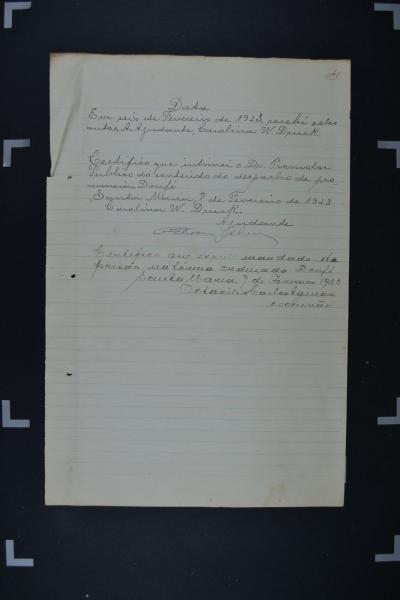 41
Data
Em seis de Fevereiro de 1923, recebi estes
autos. A Ajudante, Carolina W. Druck.
Certifico que intimei o Dr. Promotor
Publico do conteúdo do despacho de pro-
nuncia. Doufé
Santa Maria, 7 de Fevereiro de 1923.
Carolina W. Druck.
Ajudante
Certifico que expedi mandado de
prisão na forma ordenada. Doufé
Santa Maria 7 de Fevereiro 1923
escrivão